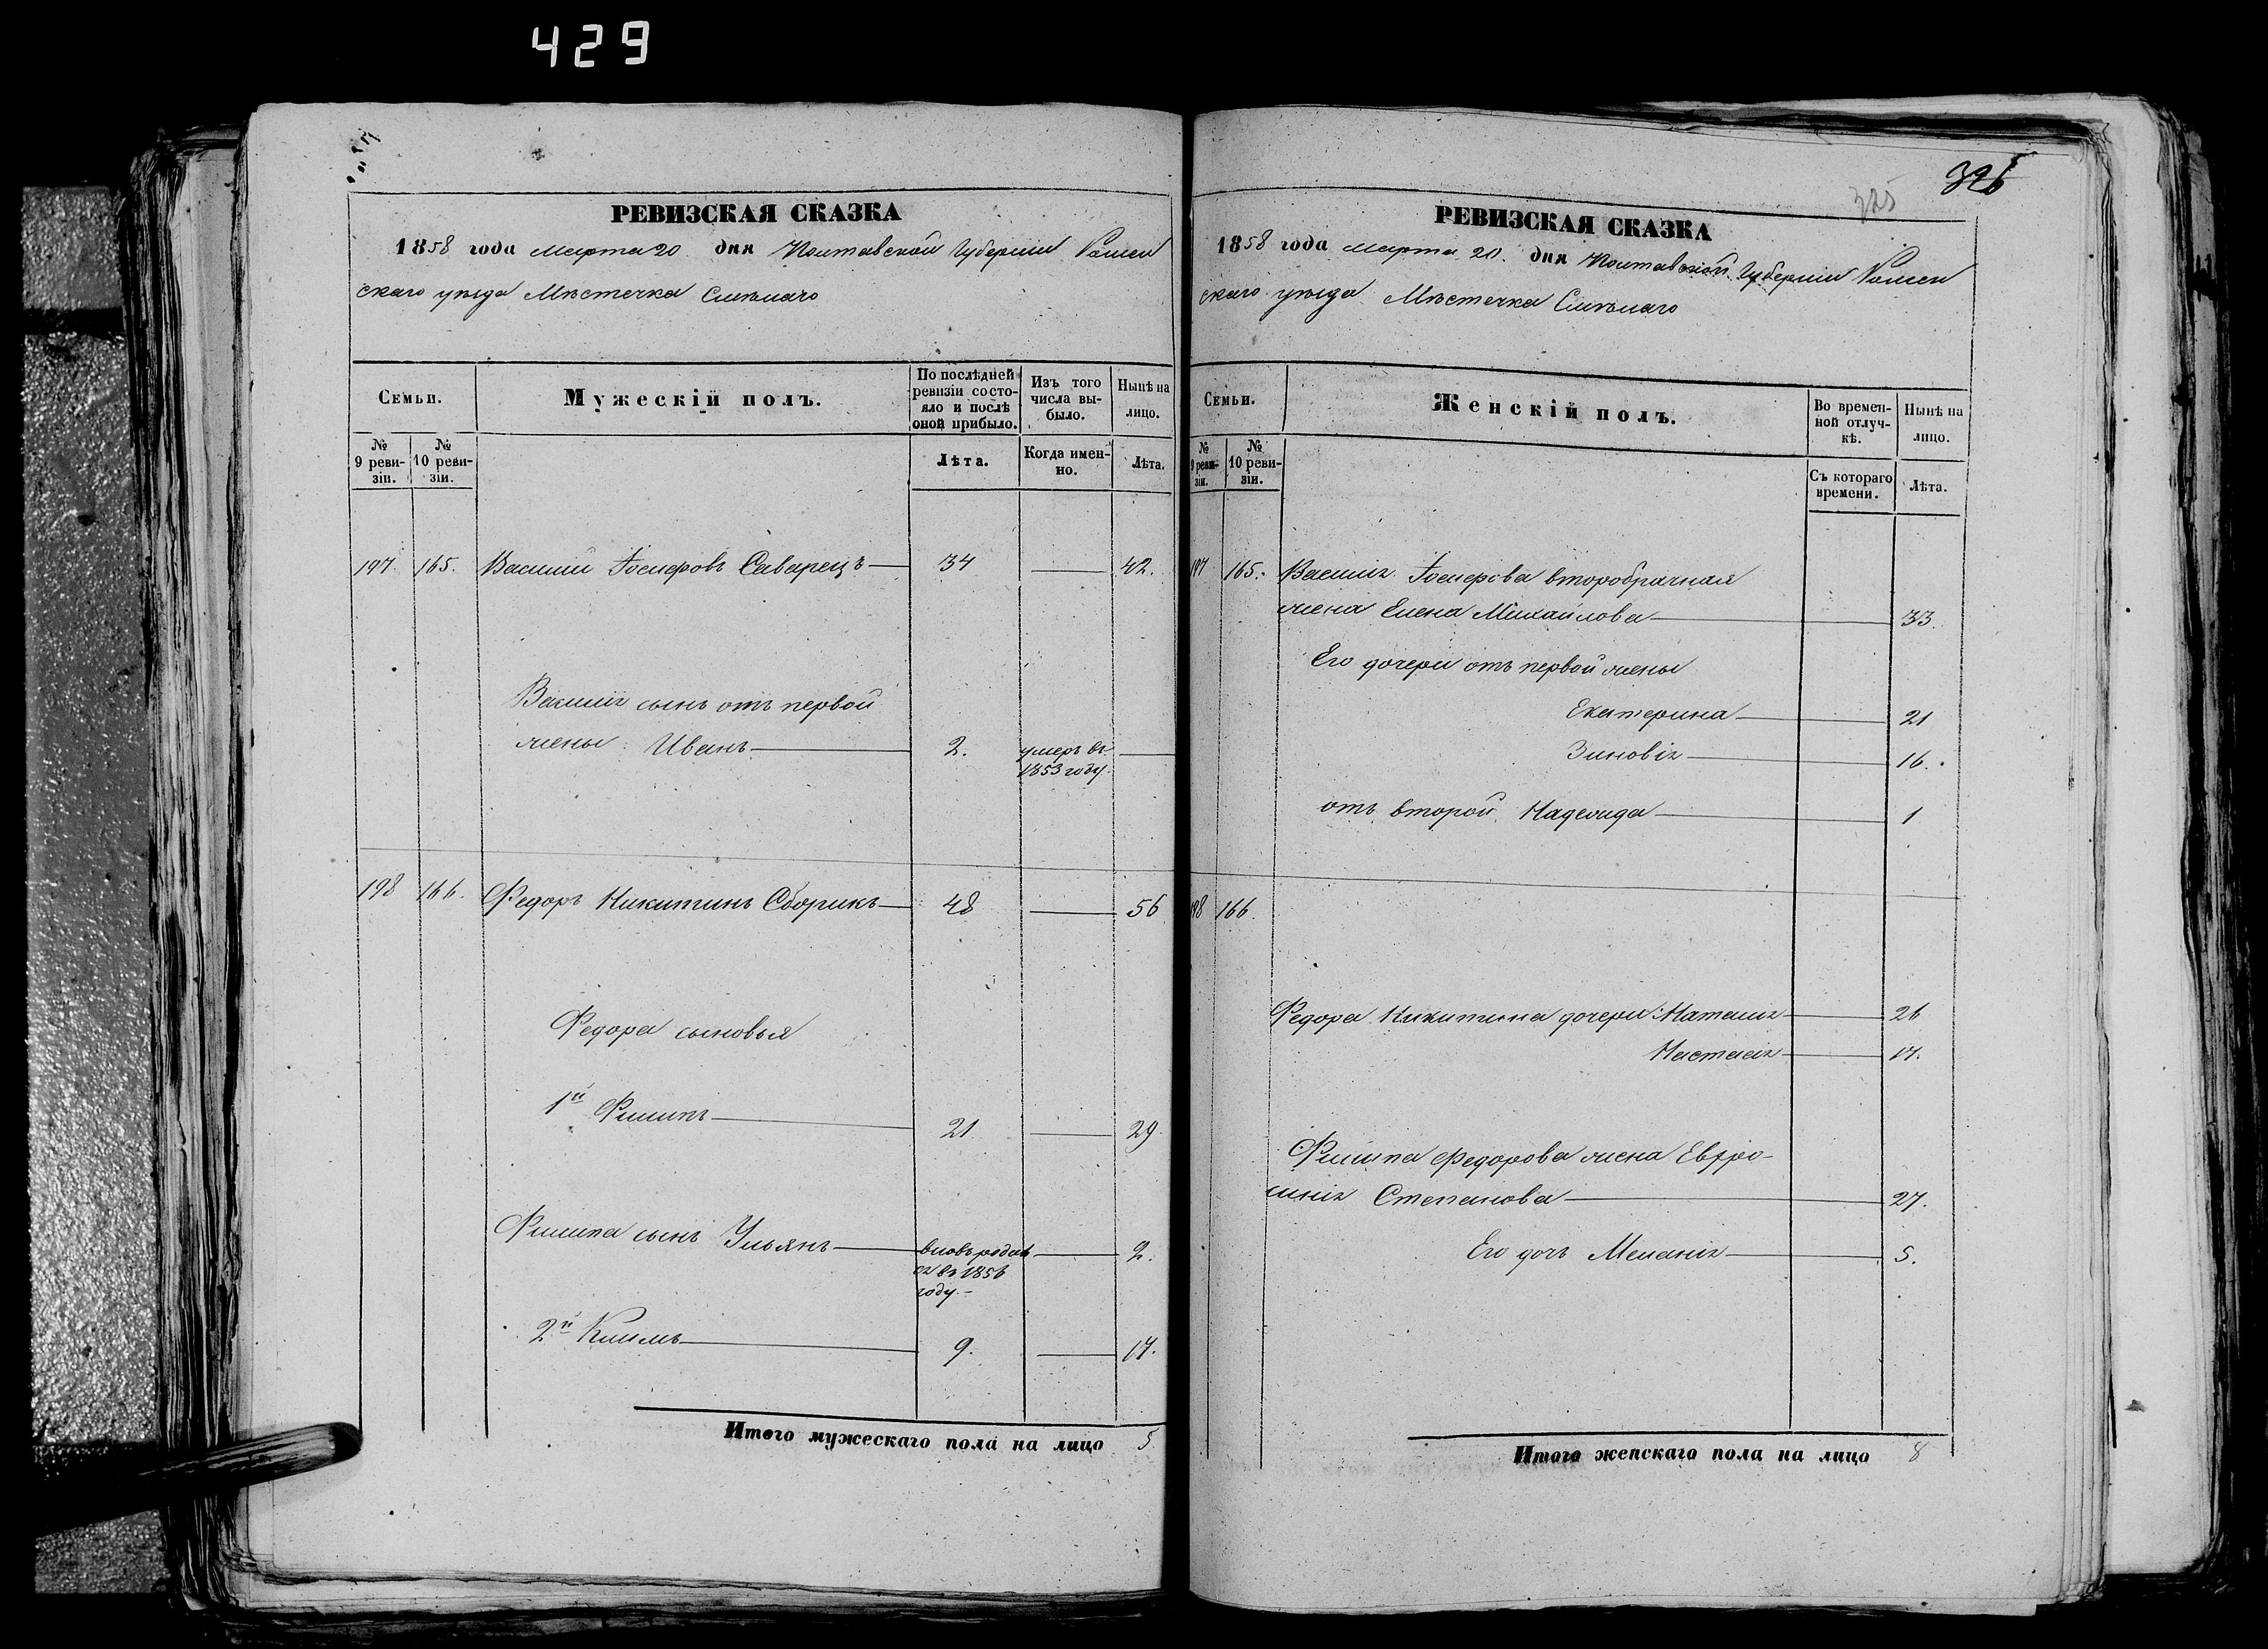 429
РЕВИЗСКАЯ СКАЗКА
1858 года марта 20 дня Полтавской Губернии Ромен
скаго уезда Местечка Смелаго
Семьи.
Мужескій полъ.
По послѣдней ревизіи состо-яло и послѣ оной прибыло.
Изъ того числа вы-было.
Нынѣ на лицо.
№ 9 реви-зіи.
№ 10 реви-зіи.
Лѣта.
Когда имен-но.
Лѣта.
197. 165. Василий Госиеровъ Саварецъ 34 42.
Василия сынъ отъ первой
жены: Иванъ 2. умеръ въ 1853 году.
198 166. Федоръ Никитинъ Сборикъ 48 56
Федора сыновья
1й Филипъ 21 29
Филипа сынъ Ульянъ вновь родился въ 1856 году. 2.
2й Климъ 9. 17.
Итого мужескаго пола на лицо 5
326
325
РЕВИЗСКАЯ СКАЗКА
1858 года марта 20. дня Полтавской Губернии Ромен
скаго уезда Местечка Смелаго
Семьи.
Женскій полъ.
Во времен-ной отлуч-кѣ.
Нынѣ на лицо.
№ 9 реви-зіи.
№ 10 реви-зіи.
Съ котораго времени.
Лѣта.
197 165. Василия Госиерова второбрачная
жена Елена Михайлова 33.
Его дочери отъ первой жены
Екатерина 21
Зиновія 16.
отъ второй Надежда 1
198 166.
Федора Никитина дочери: Наталия 26
Настасия 17.
Филипа Федорова жена Евфро-
синия Степанова 27.
Его дочь Мелания 5.
Итого женскаго пола на лицо 8